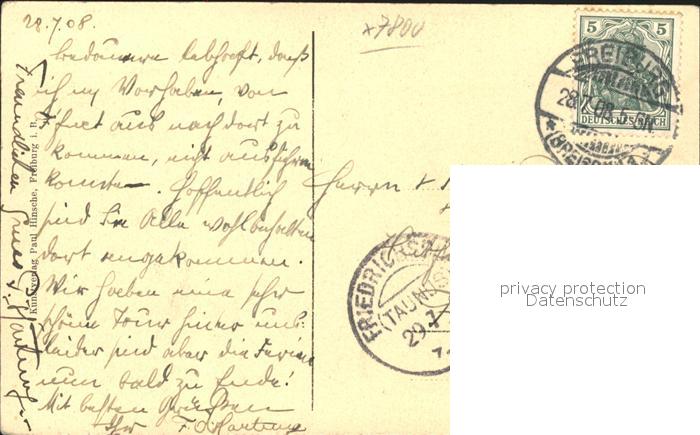 28.7.08.
x7800
bedauere lebhaft, daß
ich m Vorhaben, von
aus nach dort zu
kommen, nicht ausführen
konnte. Hoffentlich
sind Sie Alle wohlbehalten
dort angekommen.
Wir haben eine sehr
schöne Tour hinter uns,
leider sind aber die Ferien
nun bald zu Ende!
Mit besten Grüßen
Ihr F. O. Hartung
Freundlichen Gruss
Kunstverlag Paul Hinsche, Freiburg i. B.
5 5
DEUTSCHES REICH
FREIBURG
28.7.08.
(BREISGAU)
Herrn
FRIEDRICHS
(TAUNUS
29.7
privacy protection
Datenschutz